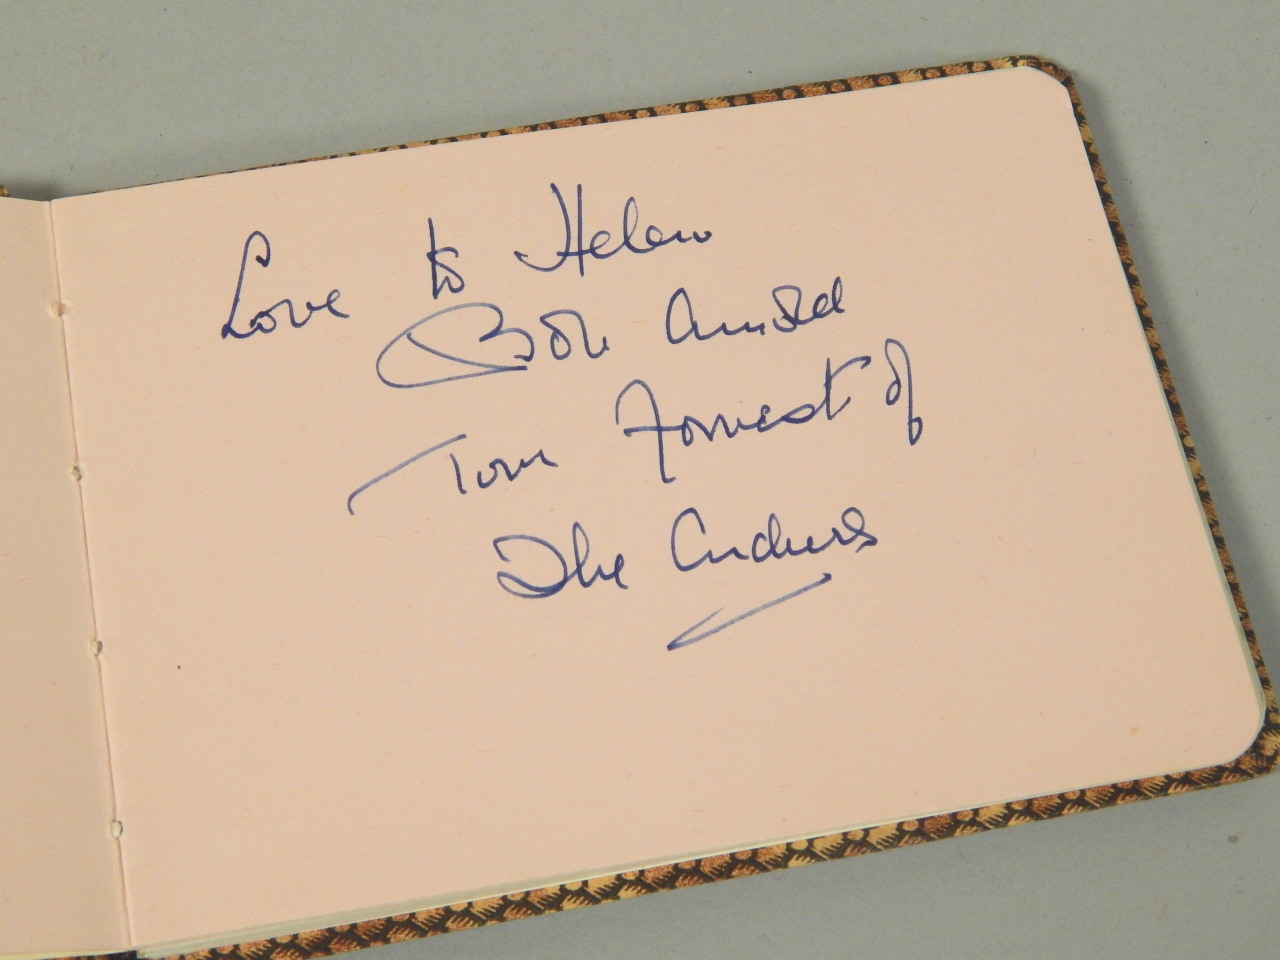 Love to Helen
Bob Arnold
Tom Forrest of
The Archers